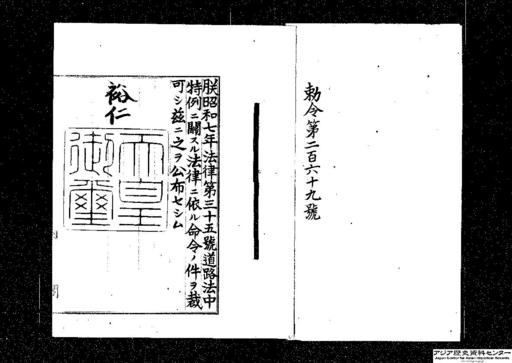 勅令第二百六十九號
朕昭和七年法律第三十五號道路法中
特例ニ關スル法律ニ依ル命令ノ件ヲ裁
可シ茲ニ之ヲ公布セシム
裕仁
天皇
御璽
アジア歴史資料センター
Japan Center for Asian Historical Records